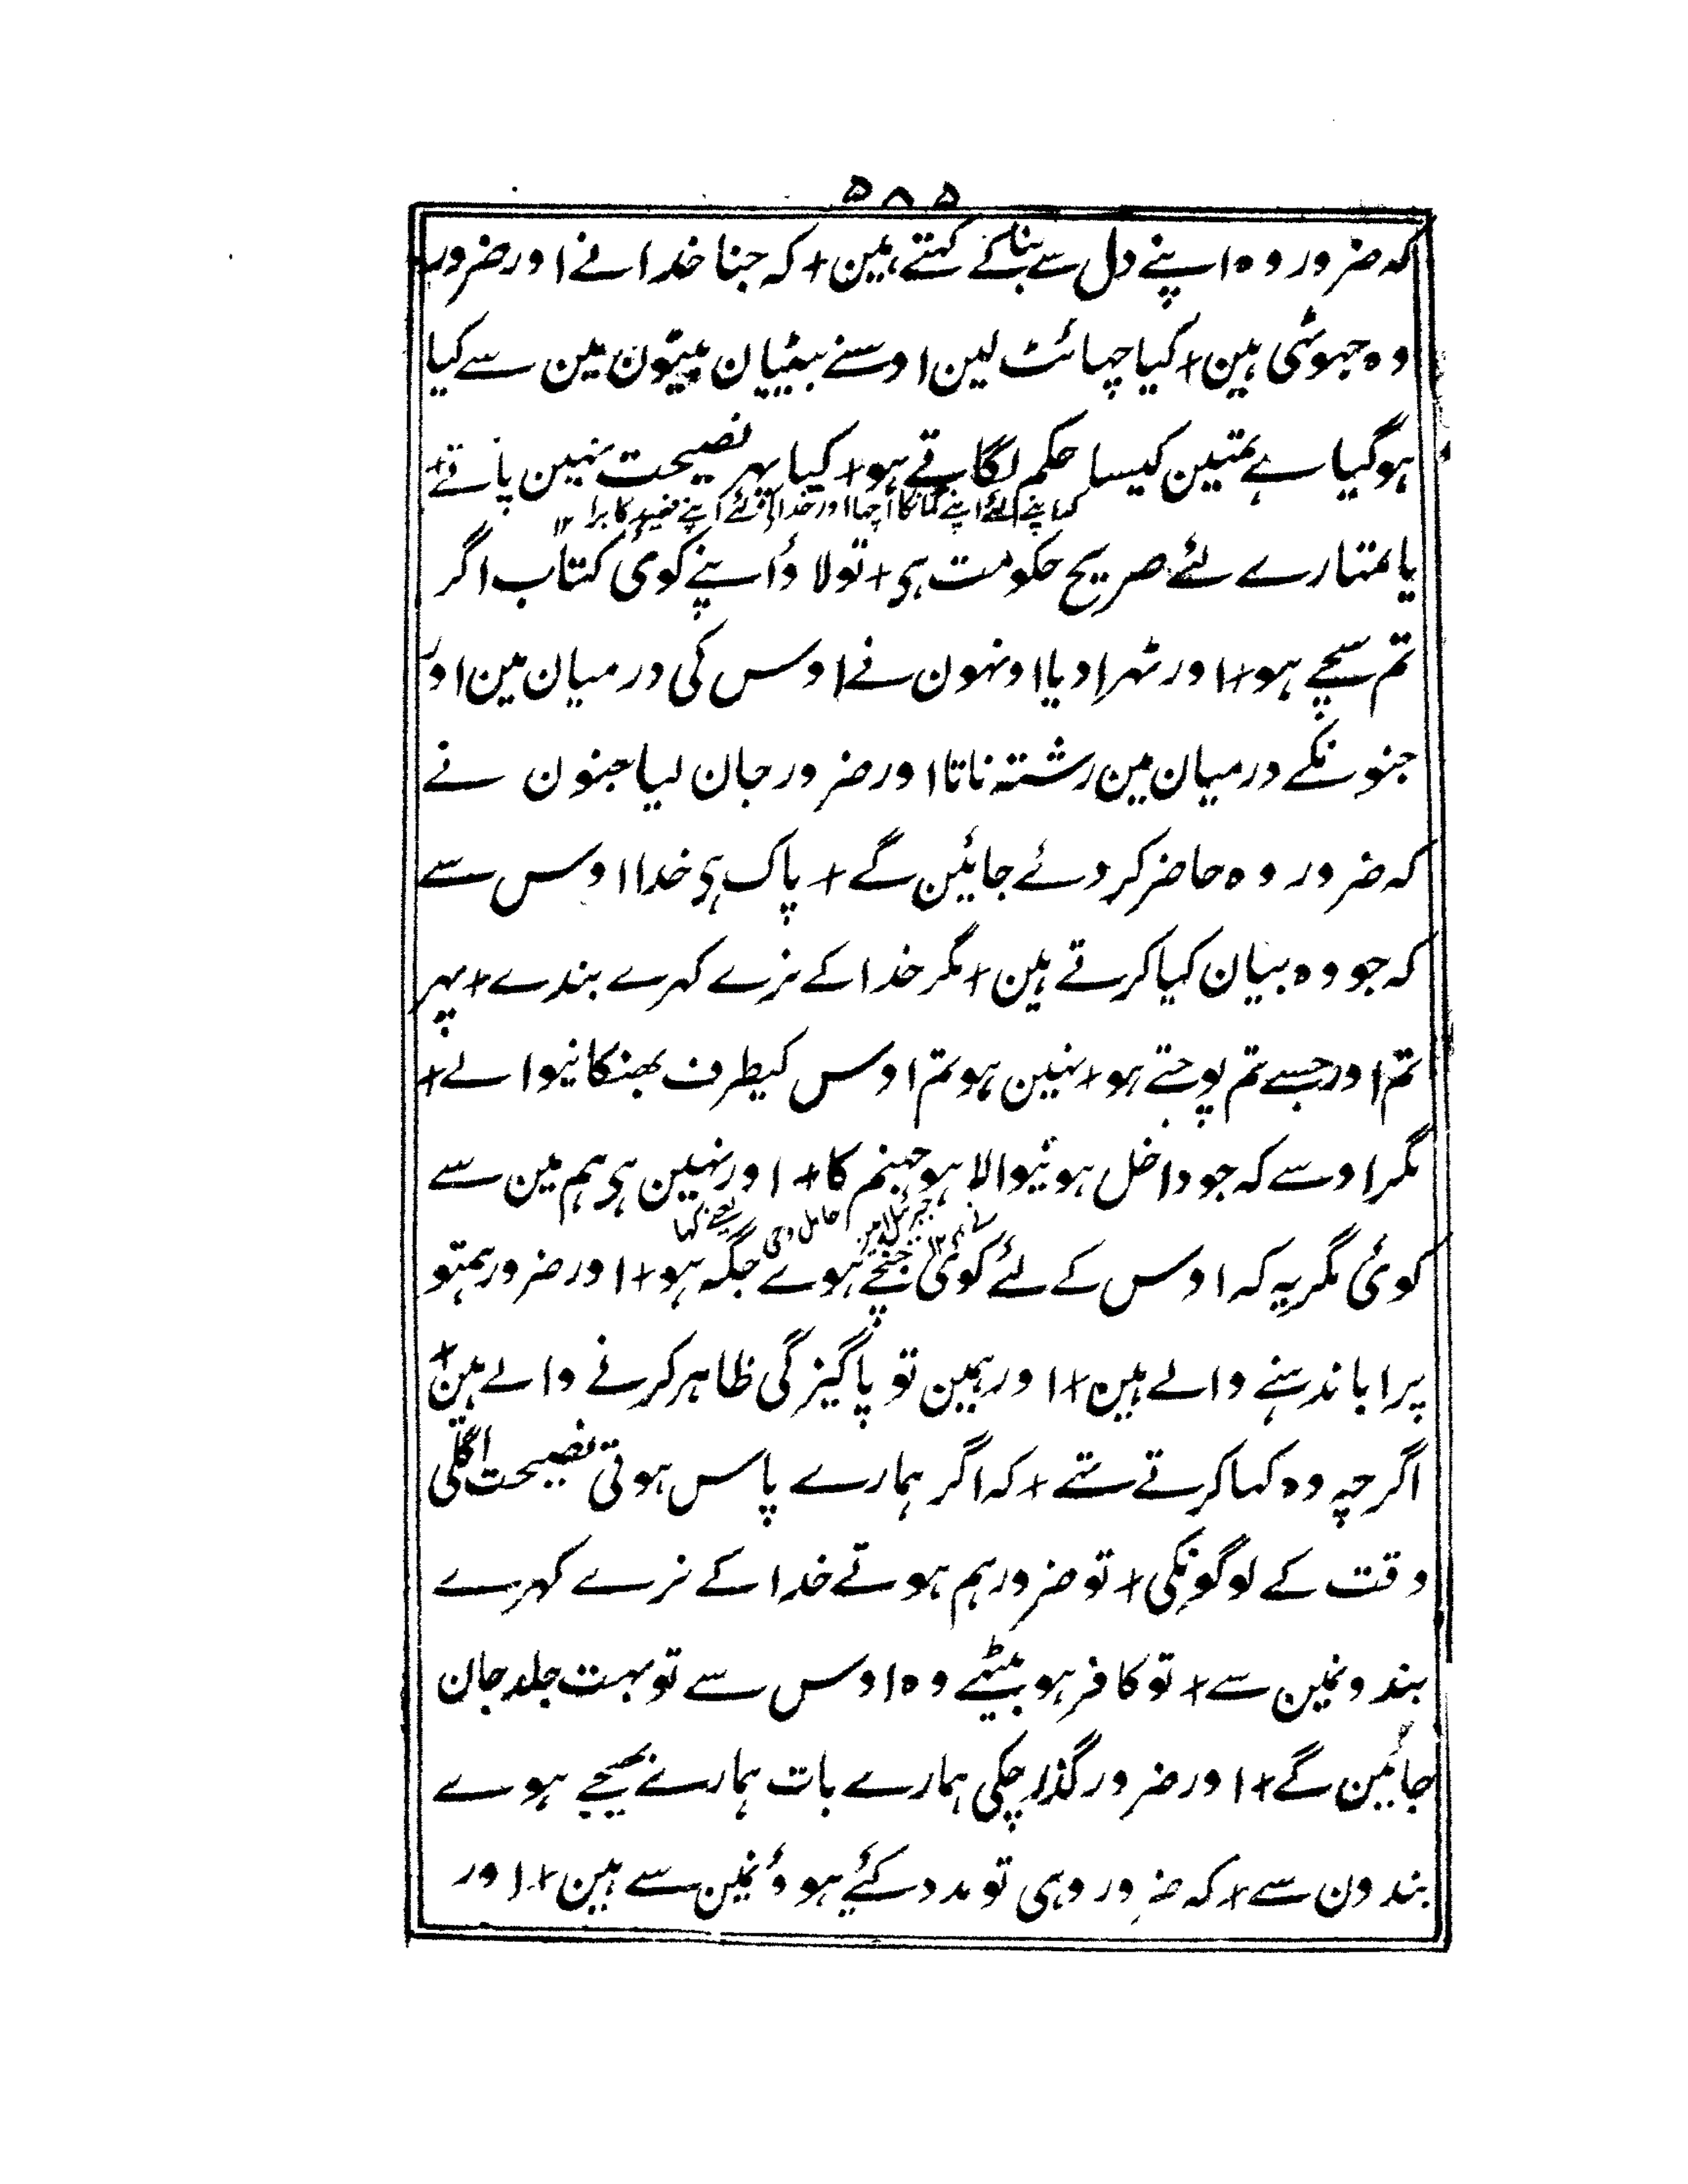 ۵۸۵
که ضرور وه اپنے دل سے بناکے کہتے ہین + که جنا خدا نے اور ضرور
وه جہوٹی ہین + کیا چہانٹ لین اوسنے بیٹیان بیٹون مین سے کیا
ہوگیا ہے تمہین کیسا حکم لگاتے ہو + کیا پہر نصیحت نہین پاتے +
کہ اپنے لئے اپنے گمان کا اچھا اور خدا کے لئے اپنے کا برا ١٢
یا تمہارے لئے صریح حکومت ہی + تو لاؤ اپنے کوئی کتاب اگر
تم سچے ہو + اور ٹہرا دیا اونہون نے اوس کی درمیان مین اور
جنونکے درمیان مین رشته ناتا اور ضرور جان لیا جنون نے
که ضرور وه حاضر کر دئے جائین گے + پاک ہی خدا اوس سے
که جو وه بیان کیا کرتے ہین + مگر خدا کے نرے کہرے بندے + پہر
تم اور جسے تم پوجتے ہو + نہین ہو تم اوس کیطرف بھنکانیوالے +
مگر اوسے که جو داخل ہونیوالا ہو جہنم کا + اور نہین ہی ہم مین سے
جبرئیل امین حامل وحی نے کہا
کوئی مگر یه که اوس کے لئے کوئی جنچے ہوے جگه ہو + اور ضرور ہمتو
پرا باندہنے والے ہین + اور ہمین تو پاگیزگی ظاہر کرنے والے ہین +
اگرچه وه کہا کرتے تہے + که اگر ہمارے پاس ہوتی نصیحت اگلی
وقت کے لوگونکی + تو ضرور ہم ہوتے خدا کے نرے کہرے
بندونمین سے + تو کافر ہو بیٹہے وه اوس سے تو بہت جلد جان
جائین گے + اور ضرور گذر چکی ہمارے بات ہمارے بھیجے ہوے
بندون سے + که ضرور وہی تو مدد کئیے ہوؤنمین سے ہین + اور